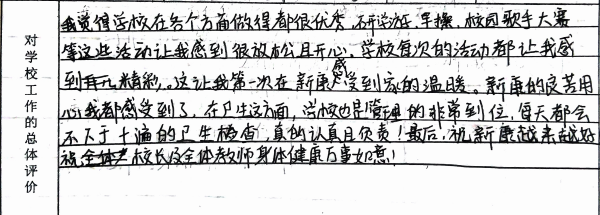 对学校工作的总体评价
我觉得学校在各个方面做得都很优秀,不论早操、校园歌手大赛
等这些活动让我感到很放松且开心,学校每次的活动都让我感
到非凡精彩。这让我第一次在新康感受到家的温暖。新康的良苦用
心我都感受到了,在卫生这方面,学校也是管理的非常到位,每天都会
不下于十遍的卫生检查,真的认真且负责!最后,祝新康越来越好
祝全体校长及全体教师身体健康万事如意!